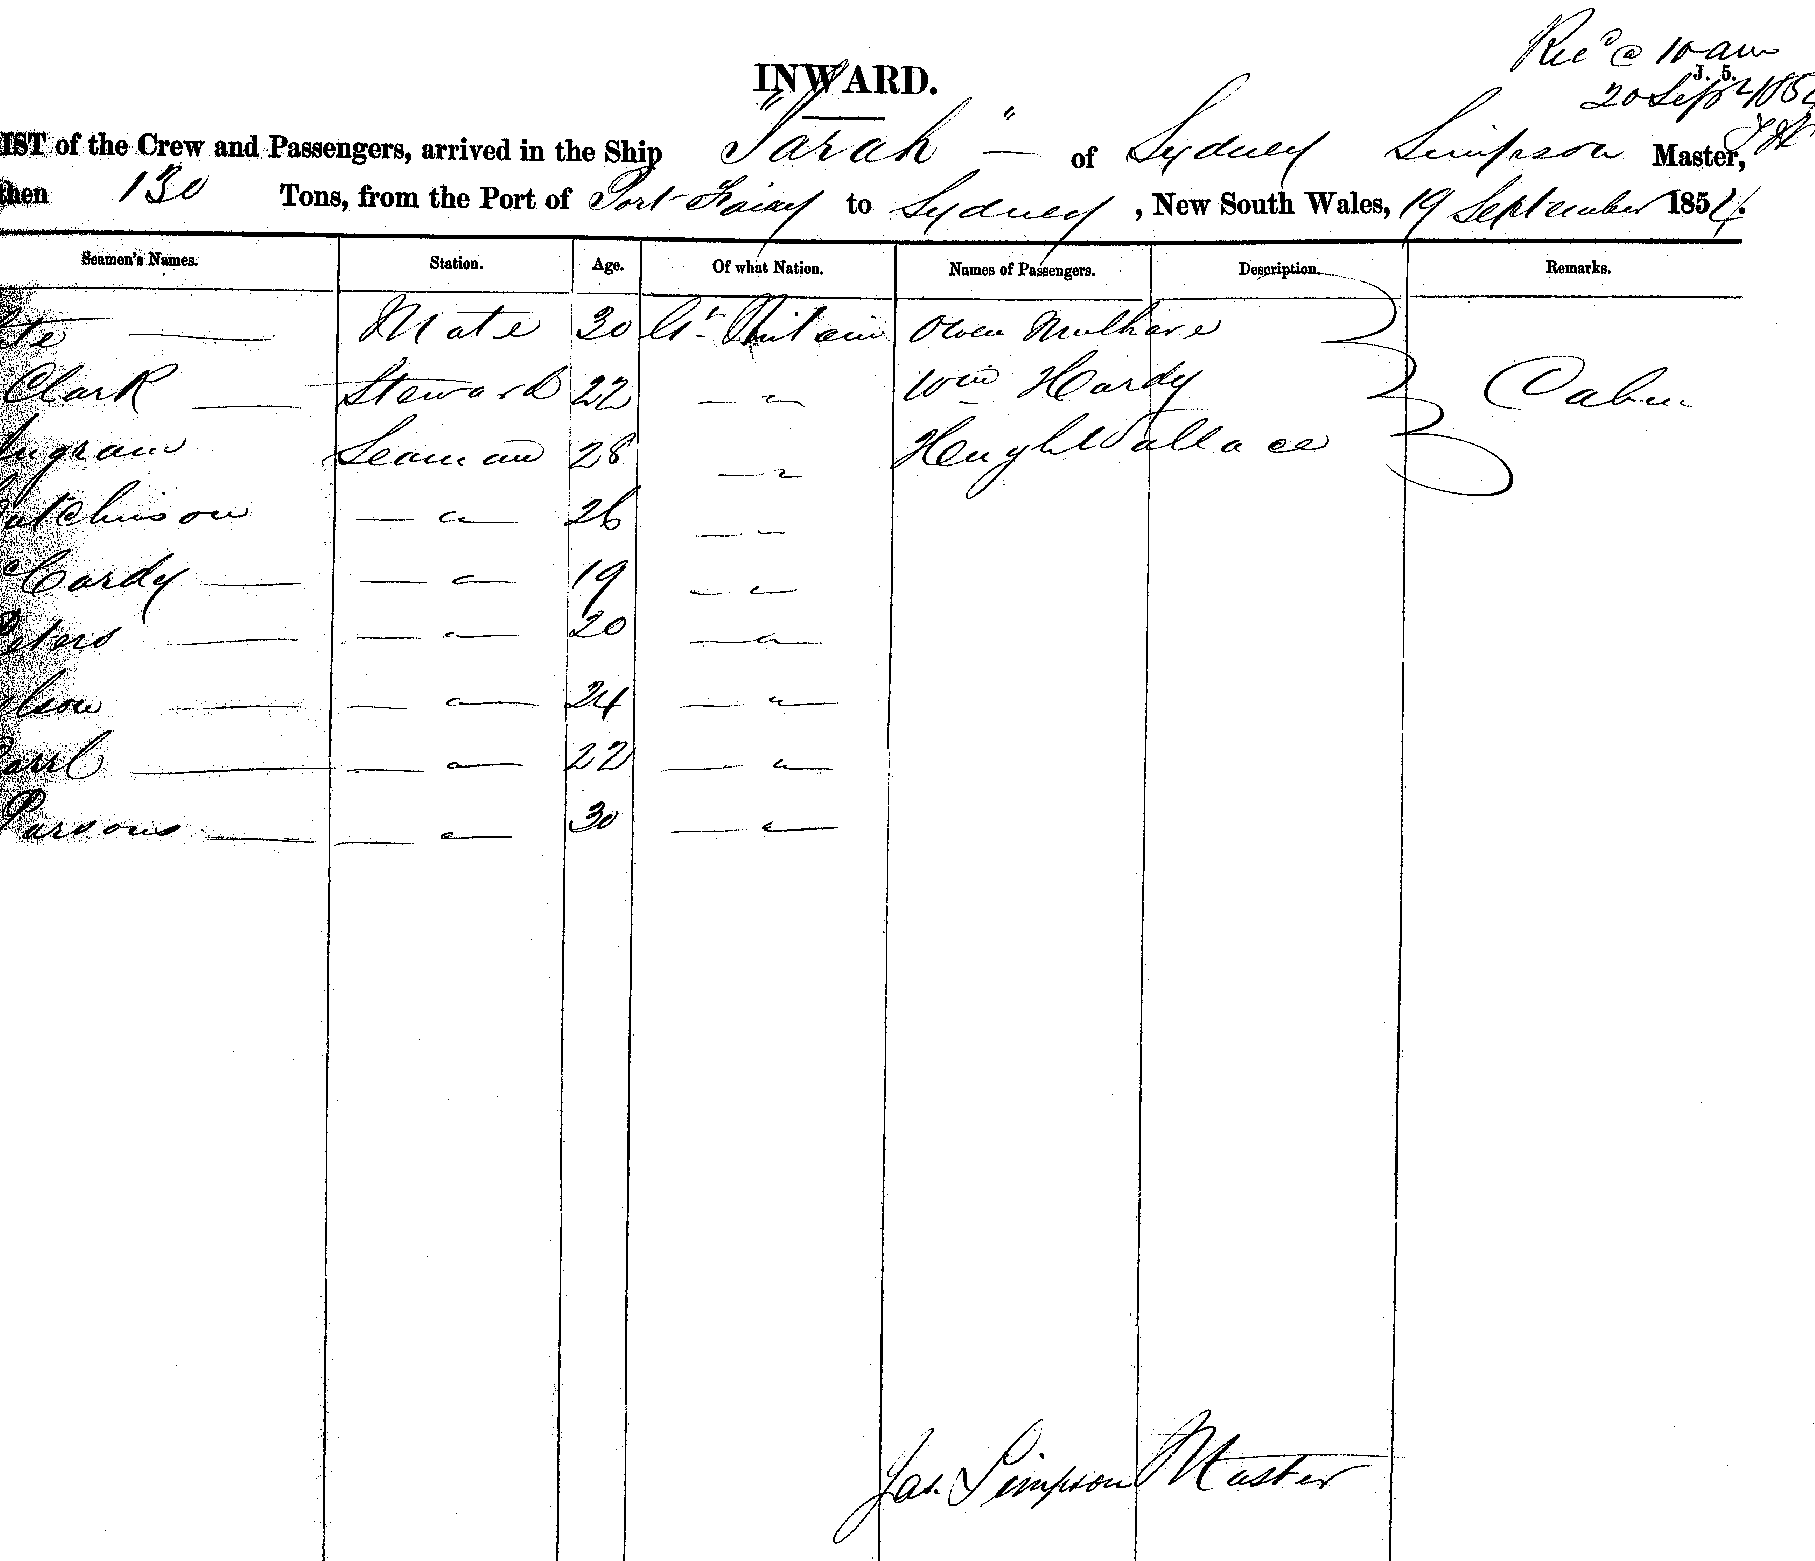 Rec'd @ 10 am
J. 5.
20 Sept 185
INWARD.
IST of the Crew and Passengers, arrived in the Ship "Sarah" — of Sydney Simpson Master,
then 130 Tons, from the Port of Port Fairy to Sydney , New South Wales, 19 September 1854.
Seamen's Names. Station. Age. Of what Nation. Names of Passengers. Description. Remarks.
Mate 30 Gt. Britain Owen Mulhare
Clark — Steward 22 — " Wm Hardy Cabin
Ingram Seaman 28 — " Hugh Wallace
utchinson — " — 26 — " —
Cardy — — " — 19 — " —
eters — — " — 20 — " —
lson — — " — 24 — " —
arl — — " — 22 — " —
Parsons — — " — 30 — " —
Jas. Simpson Master